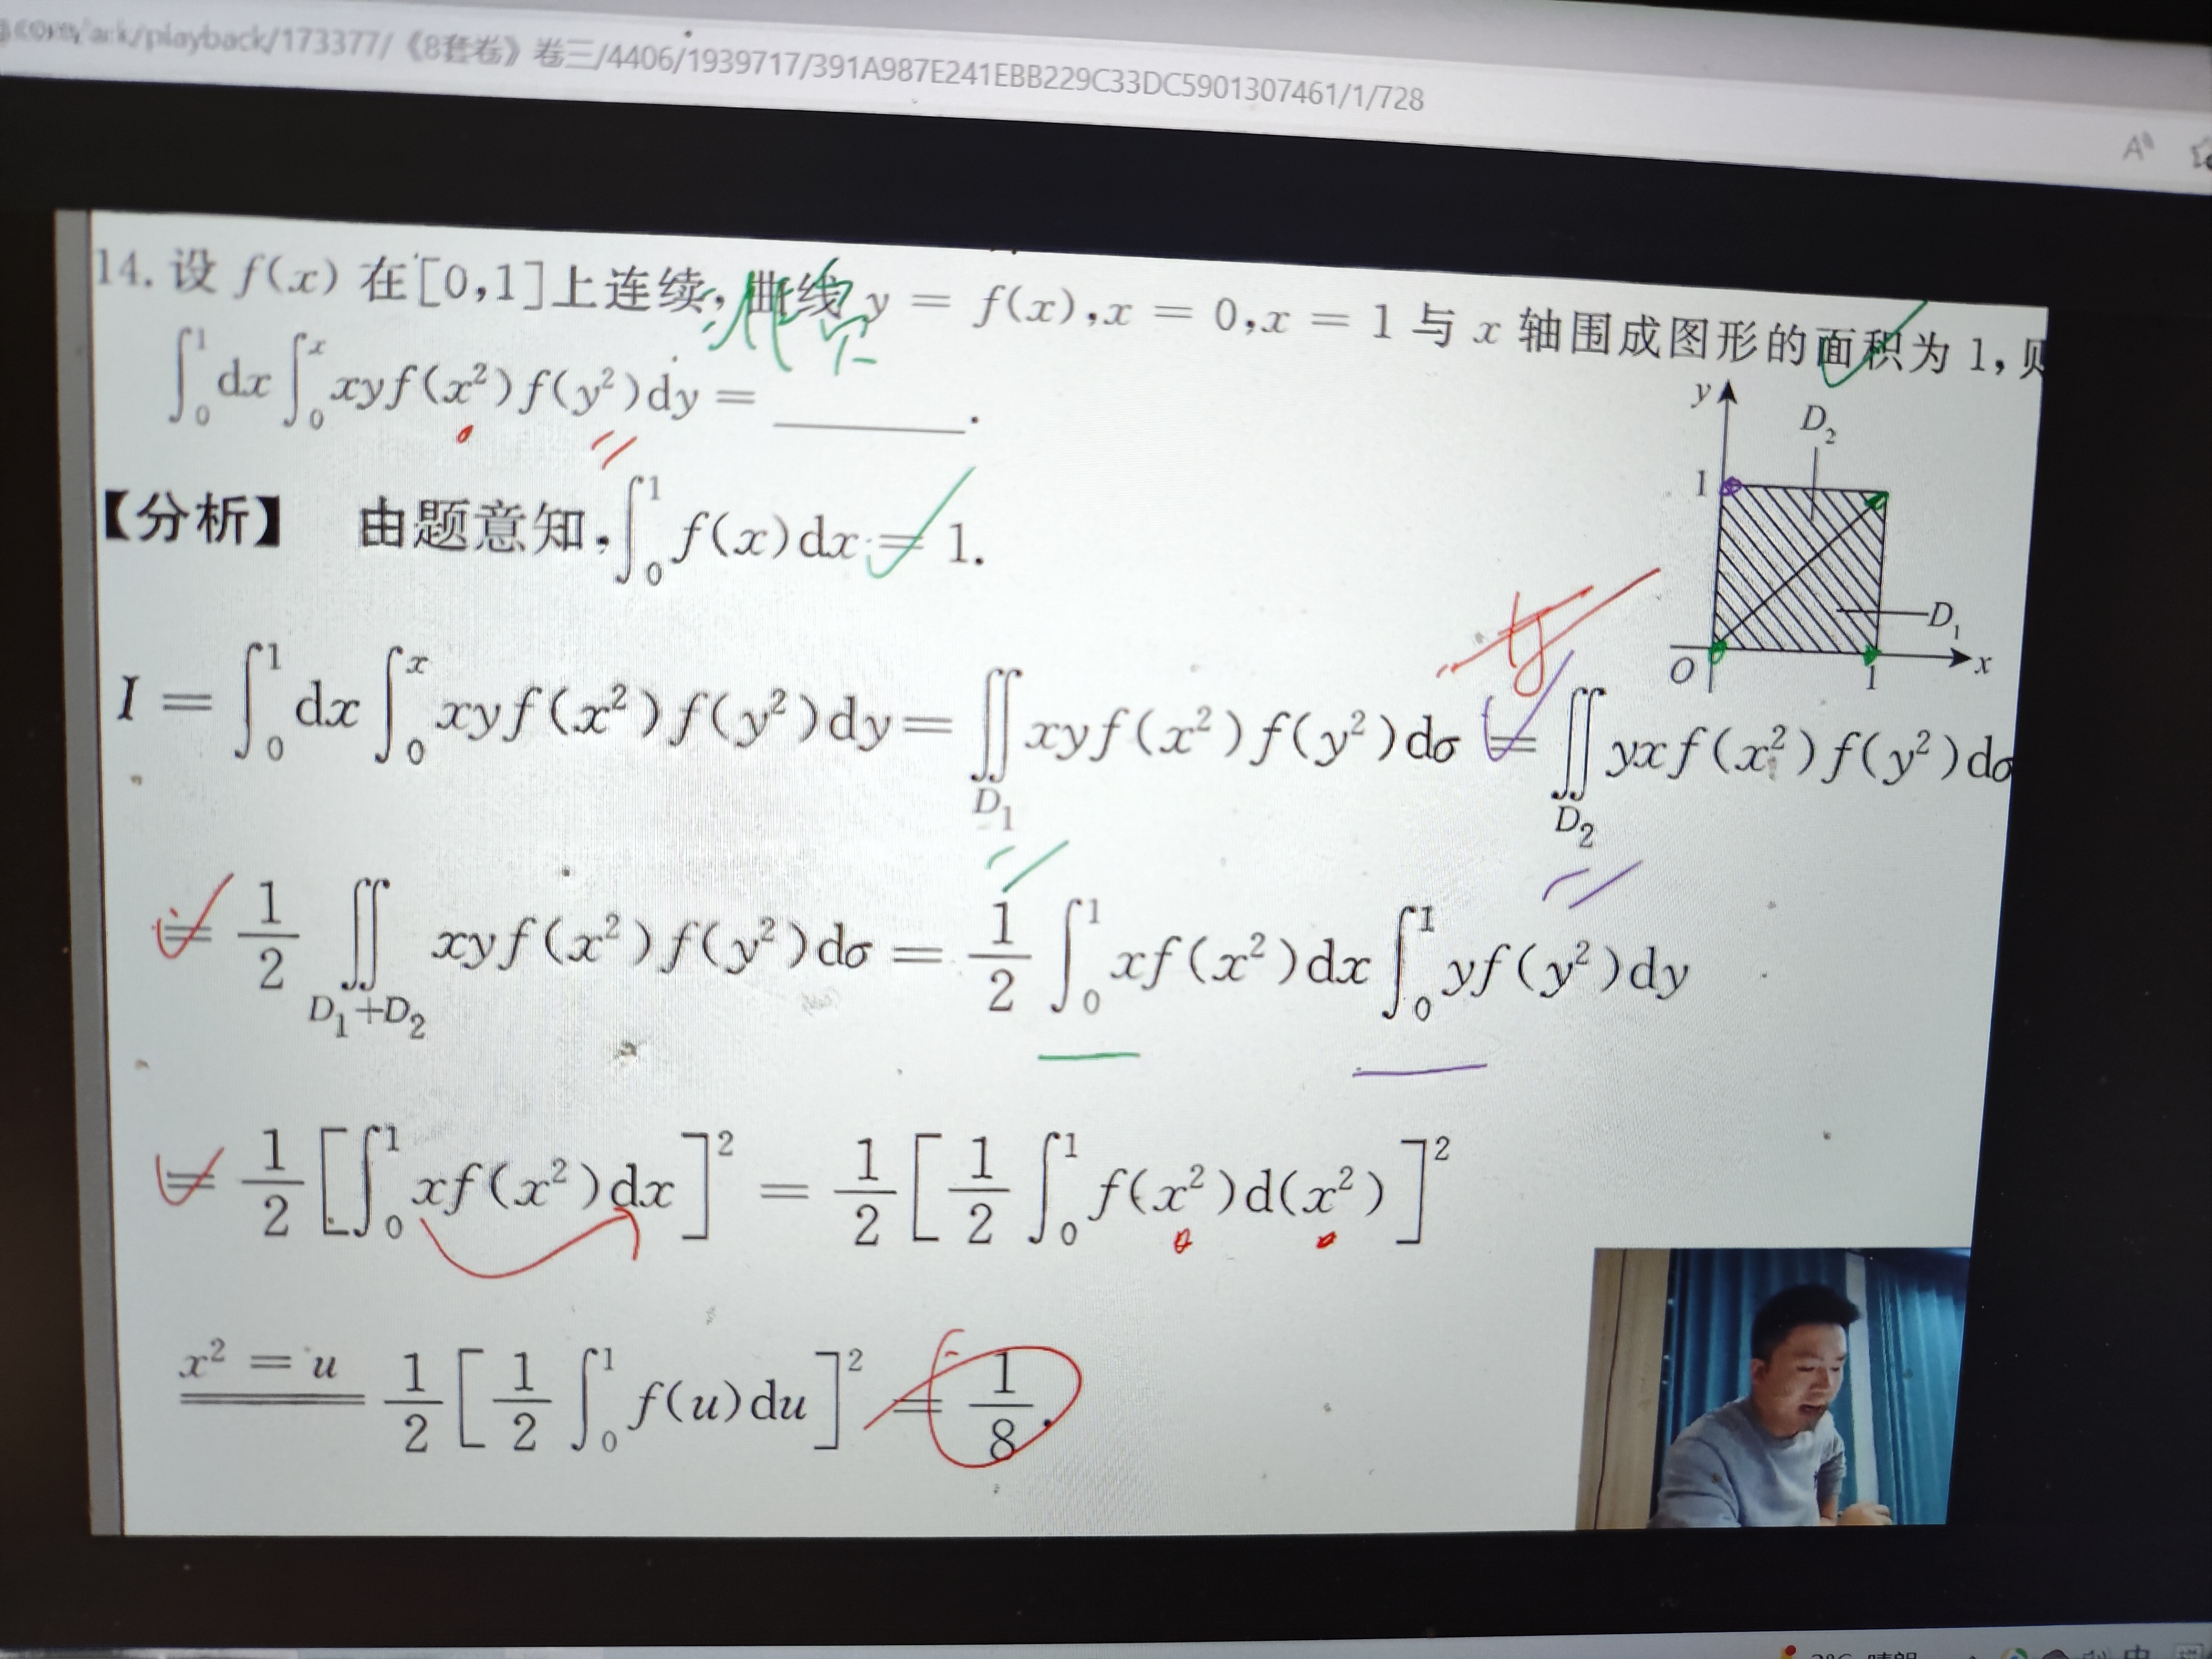 ark/playback/173377/《8套卷》卷三/4406/1939717/391A987E241EBB229C33DC5901307461/1/728
14. 设 f(x) 在[0,1]上连续, 曲线 y = f(x), x = 0, x = 1 与 x 轴围成图形的面积为 1, 则
∫₀¹ dx ∫₀ˣ xyf(x²)f(y²)dy = ______.
y
D₂
1
D₁
O
1
x
【分析】 由题意知, ∫₀¹ f(x)dx = 1.
I = ∫₀¹ dx ∫₀ˣ xyf(x²)f(y²)dy = ∬_{D₁} xyf(x²)f(y²)dσ = ∬_{D₂} yxf(x²)f(y²)dσ
= 1/2 ∬_{D₁+D₂} xyf(x²)f(y²)dσ = 1/2 ∫₀¹ xf(x²)dx ∫₀¹ yf(y²)dy
= 1/2 [∫₀¹ xf(x²)dx]² = 1/2 [1/2 ∫₀¹ f(x²)d(x²)]²
x² = u 1/2 [1/2 ∫₀¹ f(u)du]² = 1/8.